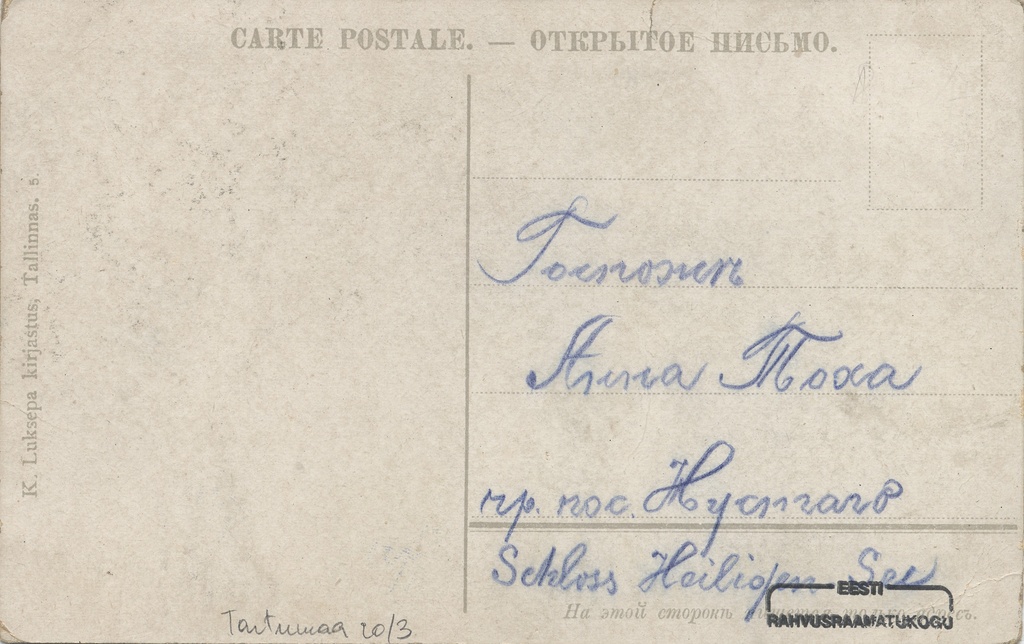 CARTE POSTALE. — ОТКРЫТОЕ ПИСЬМО.
K. Luksepa kirjastus, Tallinnas. 5.
Госпожѣ
Анна Поха
пр. пос.
Schloss Heiligen See
На этой сторонѣ пишется только адресъ.
EESTI
RAHVUSRAAMATUKOGU
Tartumaa 20/3